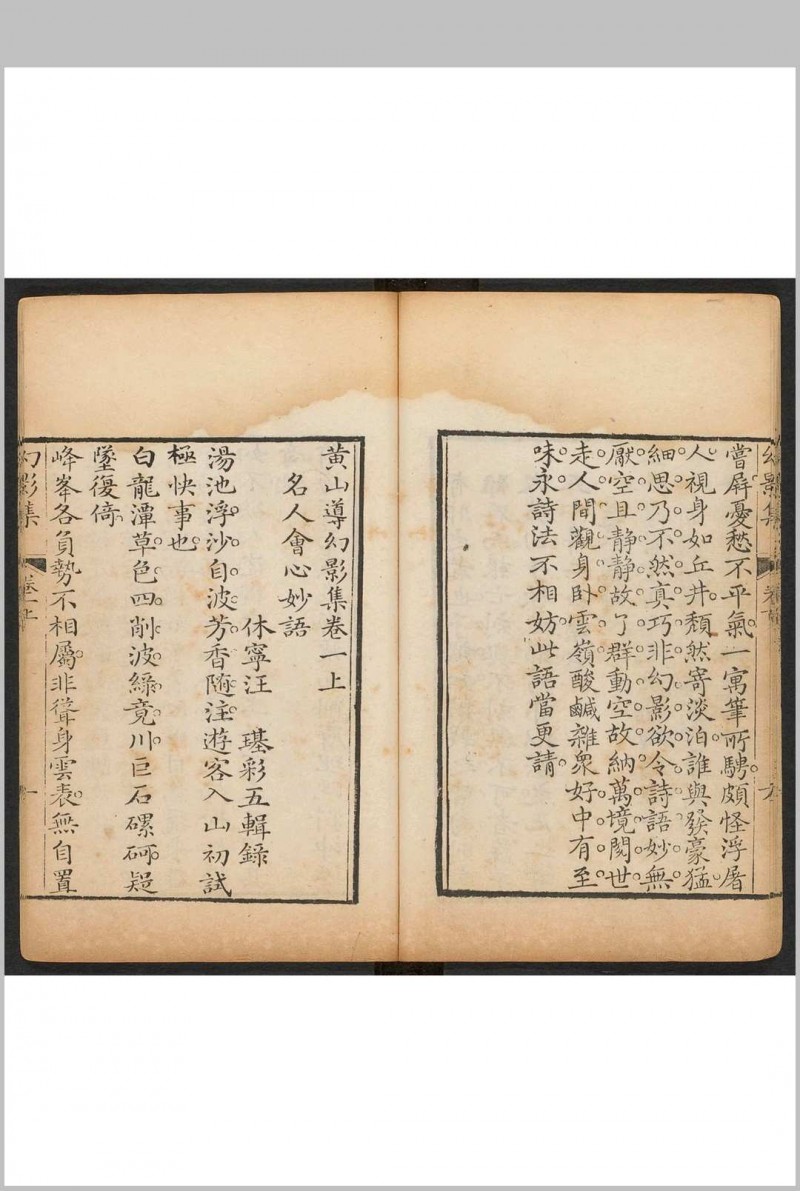 幻影集
嘗屏憂愁不平氣一寓筆所騁頗怪浮屠
人視身如丘井頹然寄淡泊誰與發豪猛
細思乃不然真巧非幻影欲令詩語妙無
厭空且靜靜故了群動空故納萬境閱世
走人間觀身臥雲嶺酸鹹雜衆好中有至
味永詩法不相妨此語當更請
黄山導幻影集卷一上
名人會心妙語
休寧汪 璂彩五輯錄
湯池浮沙自波芳香隧注遊客入山初試
極快事也
白龍潭草色四削波綠竟川巨石磥砢疑
墜復倚
峰峯各負勢不相屬非聳身雲表無自置
幻影集 卷一上 一